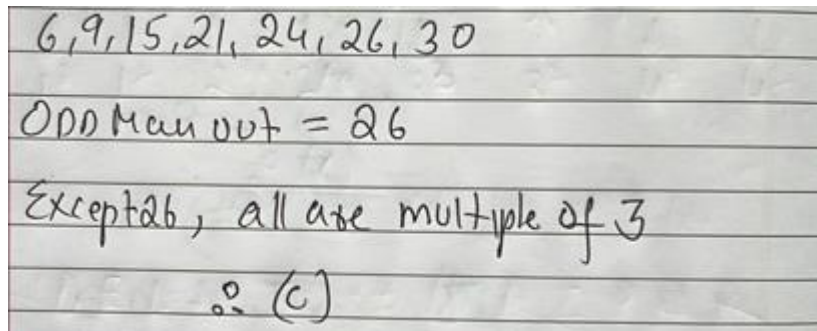 6, 9, 15, 21, 24, 26, 30
ODD Man out = 26
Except 26, all are multiple of 3
∴ (C)